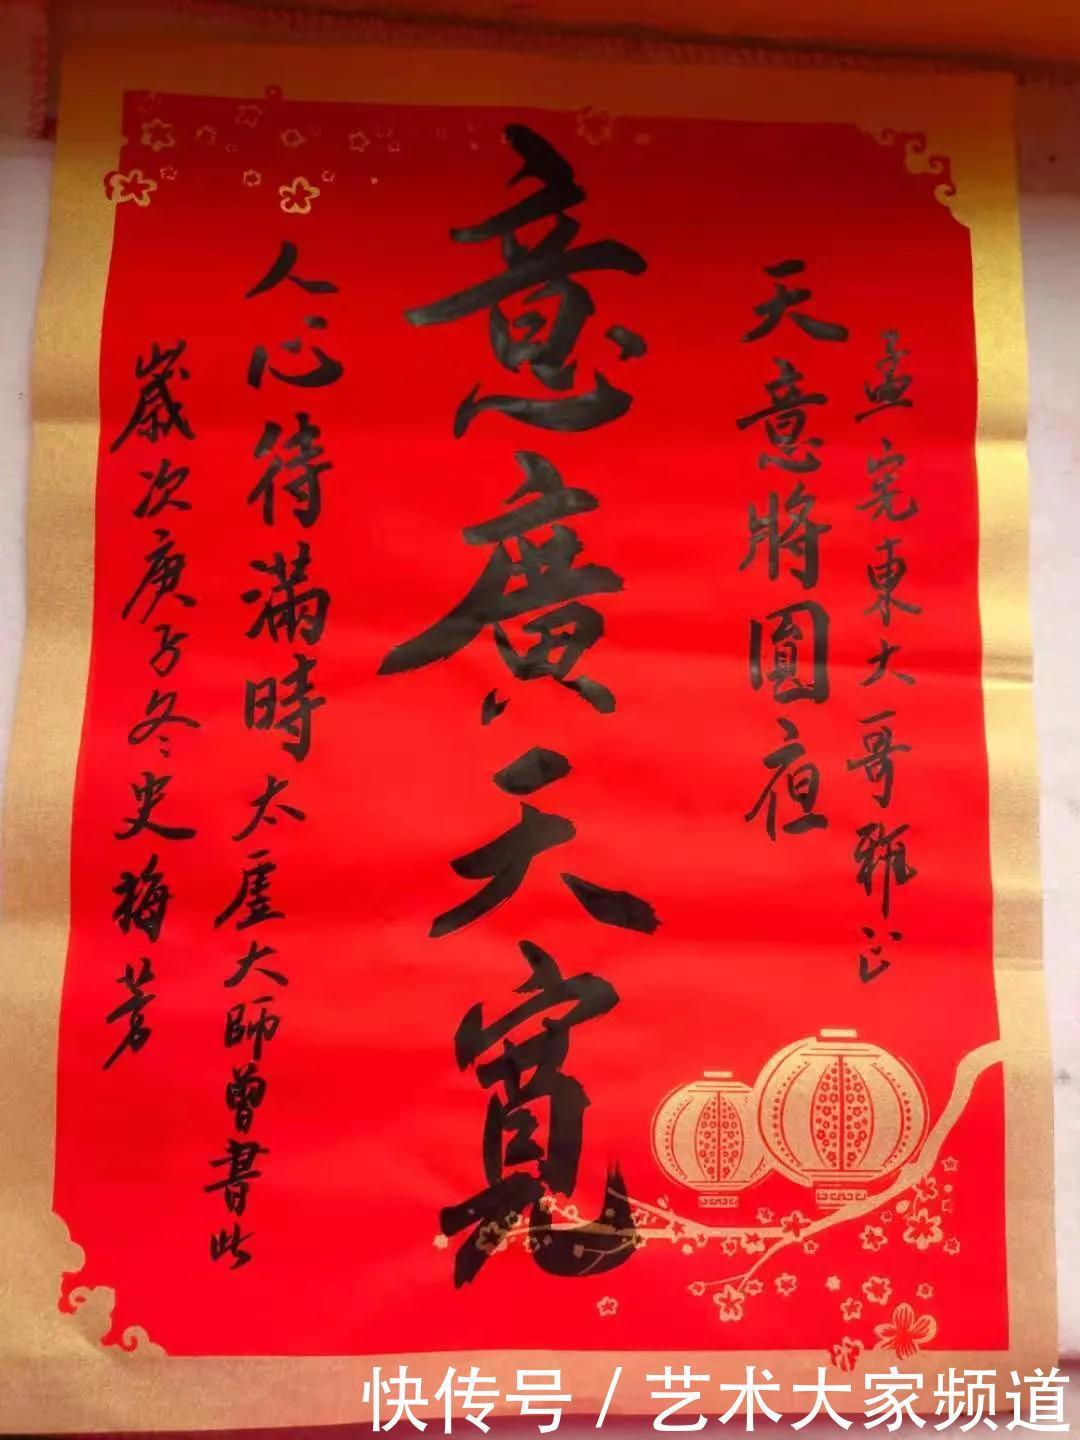 孟宪東大哥雅正
天意將圓夜
意廣天寬
人心待滿時太虛大師曾書此
歲次庚子冬史梅芳
快传号/艺术大家频道